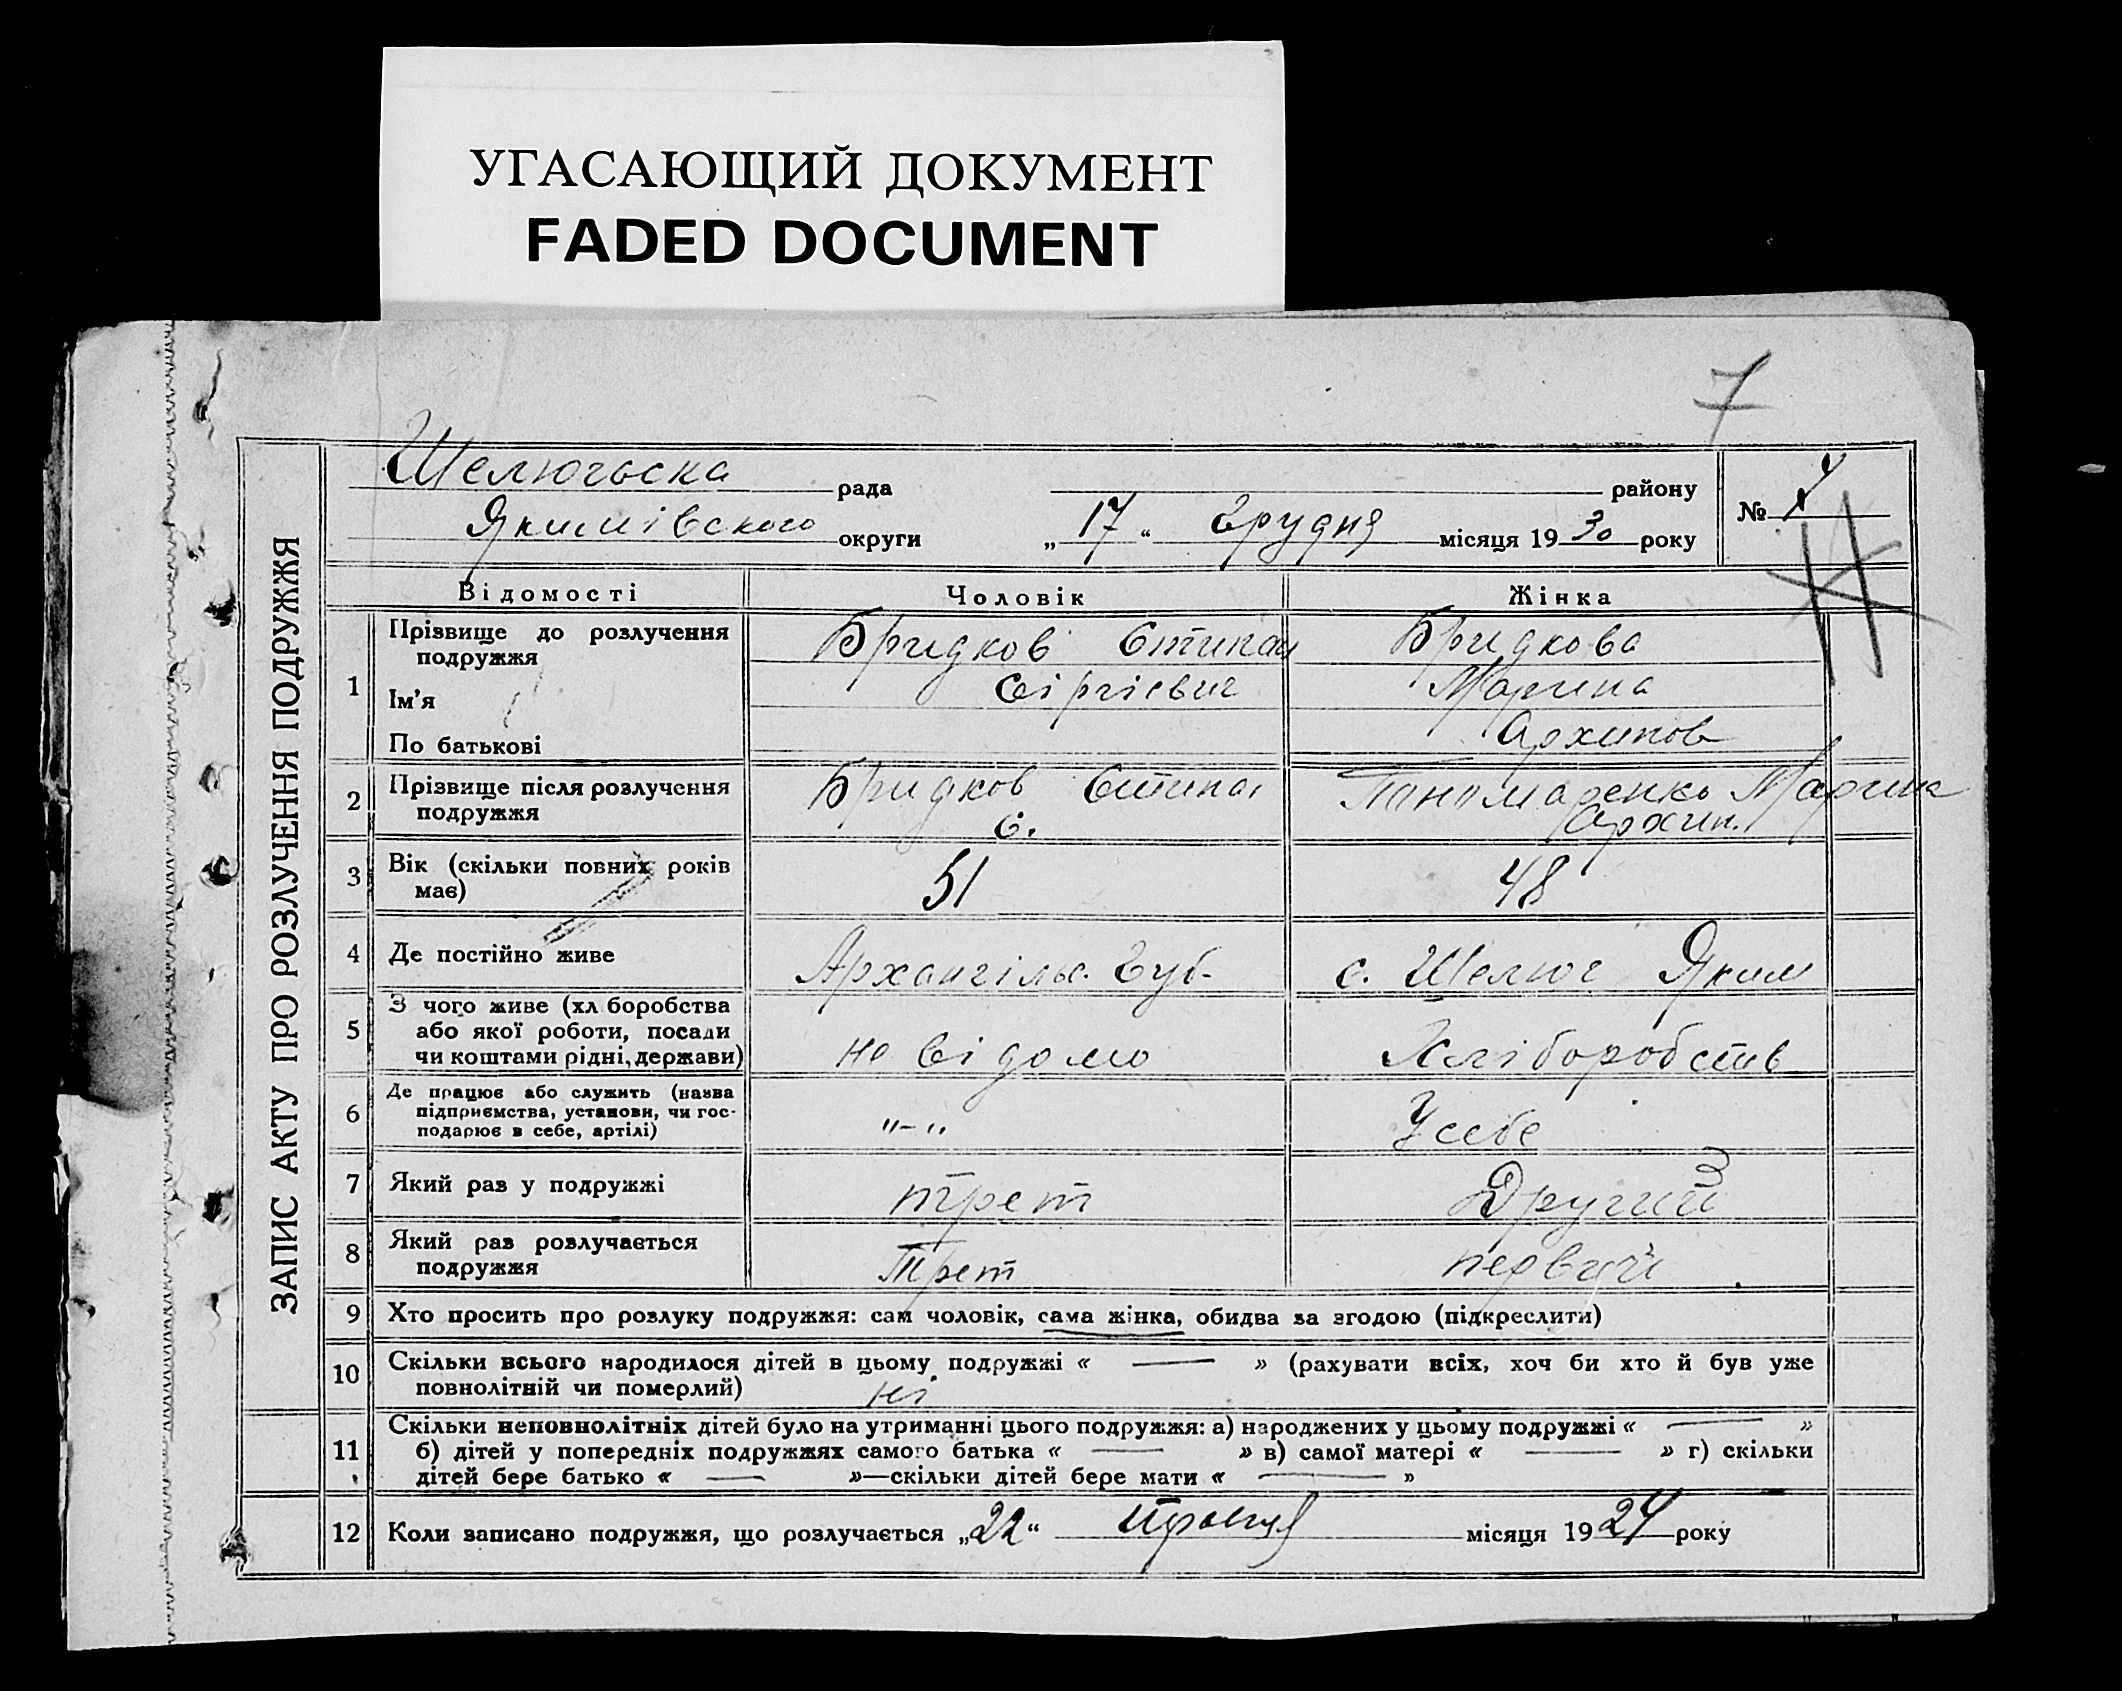 УГАСАЮЩИЙ ДОКУМЕНТ
FADED DOCUMENT
7
ЗАПИС АКТУ ПРО РОЗЛУЧЕННЯ ПОДРУЖЖЯ
Шелюгьска рада району
№
Якимівского округи „17“ грудня місяця 1930 року
Відомості Чоловік Жінка
1 Прізвище до розлучення подружжя Бридков Бридкова
Ім'я Сіргієвич Марина
По батькові Архипов
2 Прізвище після розлучення подружжя Бридков С. Панамаренко Марина Архип.
3 Вік (скільки повних років має) 51 48
4 Де постійно живе Архангільс. Губ. с. Шелюг Яким
5 З чого живе (хліборобства або якої роботи, посади чи коштами рідні, держави) не відомо Хліборобств
6 Де працює або служить (назва підприємства, установи, чи господарює в себе, артілі) "–" У себе
7 Який раз у подружжі трет Другий
8 Який раз розлучається подружжя Трет первий
9 Хто просить про розлуку подружжя: сам чоловік, сама жінка, обидва за згодою (підкреслити)
10 Скільки всього народилося дітей в цьому подружжі « — » (рахувати всіх, хоч би хто й був уже
повнолітній чи померлий) ні
11 Скільки неповнолітніх дітей було на утриманні цього подружжя: а) народжених у цьому подружжі « — »
б) дітей у попередніх подружжях самого батька « — » в) самої матері « — » г) скільки
дітей бере батько « — »—скільки дітей бере мати « — »
12 Коли записано подружжя, що розлучається „22“ місяця 1924 року